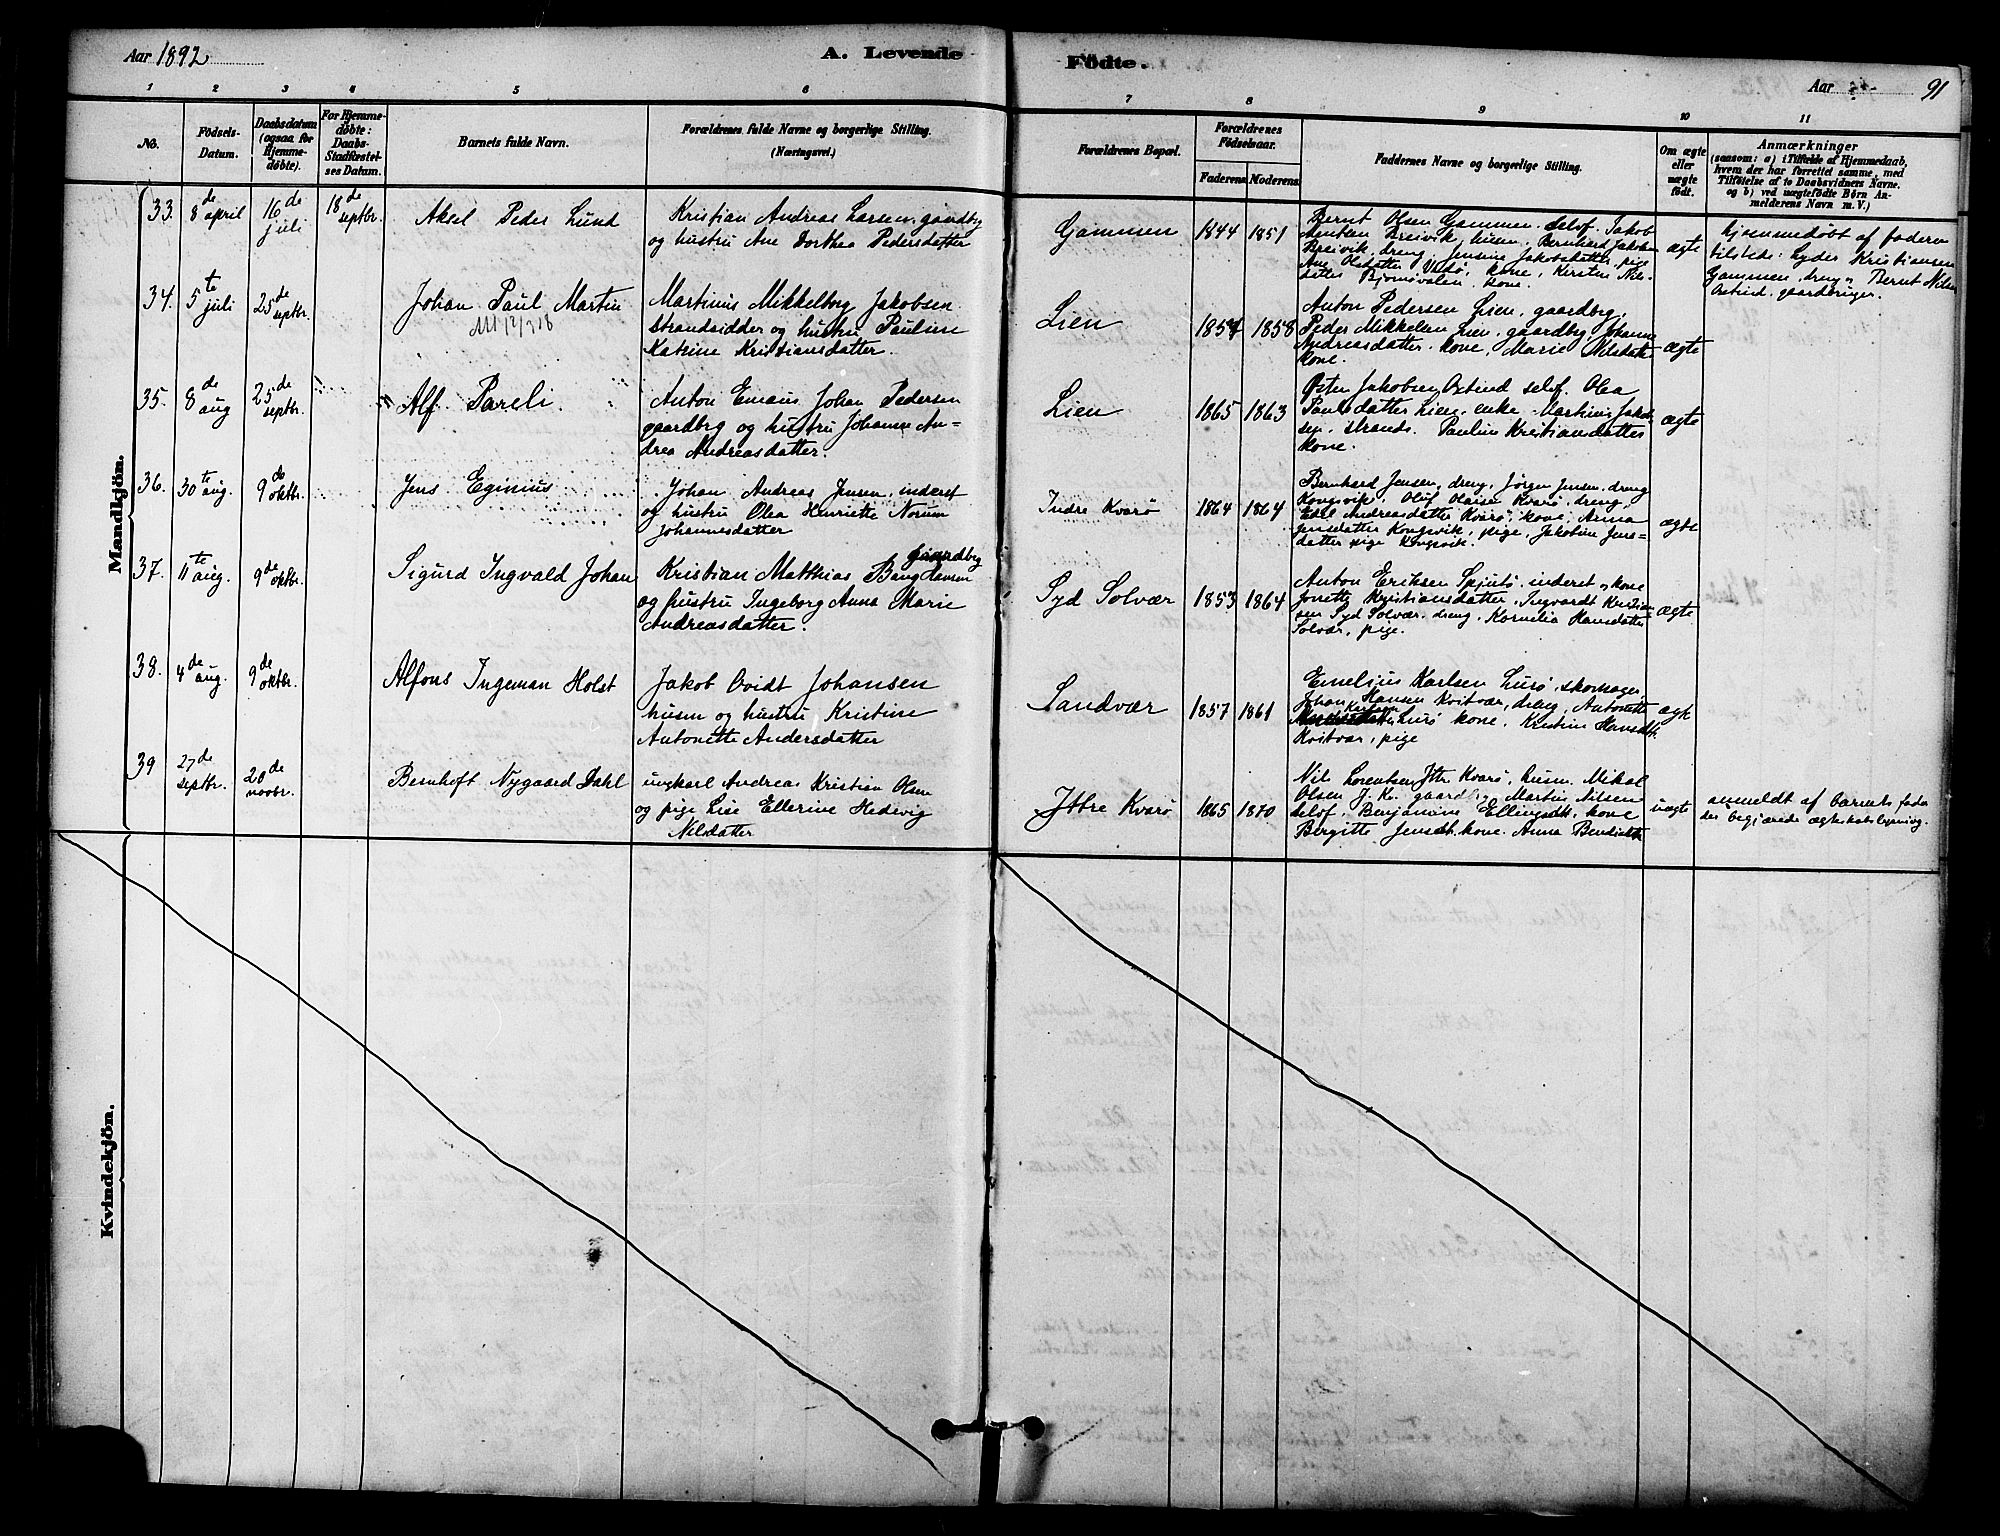 Aar 1892
A. Levende
Födte.
Aar
91
1 2 3 4 5 6 7 8 9 10 11
No.
Födsels-
Datum.
Daabsdatum
(ogsaa for
Hjemme-
døbte).
For Hjemme-
døbte:
Daabs-
Stadfæstel-
ses Datum.
Barnets fulde Navn.
Forældrenes fulde Navne og borgerlige Stilling.
(Næringsvei.)
Forældrenes Bopæl.
Forældrenes
Fødselsaar.
Faderens Moderens
Faddernes Navne og borgerlige Stilling.
Om ægte
eller
uægte
født.
Anmærkninger
(saasom: a) i Tilfælde af Hjemmedaab,
hvem der har forrettet samme, med
Tilføielse af to Daabsvidners Navne.
og b) ved uægtefødte Børn An-
melderens Navn m. V.)
Mandkjön.
33. 8de april
16de juli
18de septbr.
Aksel Peder Lund
Kristian Andreas Larsen, gaardbrg
og hustru Ane Dorthea Pedersdatter
Gammen
1844 1851
Bernt Olsen Gammen selvf. Jakob
Breivik, husm. Bernhard Jakobsen
Breivik, dreng, Jensine Jakobsdatter, pige
Ane Olsdatter kone, Kirsten Nils-
datter kone.
ægte
hjemmedøbt af faderen
tilstede: Kristiansen
Gammen, dreng, Bernt Nilsen
Østind. gaardbruger.
34. 5te juli
25de septbr.
Johan Paul Martin
Martinus Mikkelborg Jakobsen
strandsidder og hustru Pauline
Katrine Kristiansdatter.
Lien
1857 1858
Anton Pedersen Lien, gaardbrg.
Peder Mikkelsen Lien, gaardbrg Johanna
Andreasdatter kone, Marie Nilsdatt.
kone.
ægte
35. 8de aug
25de septbr.
Alf Pareli
Anton Emaus Johan Pedersen
gaardbrg og hustru Johanna An=
drea Andreasdatter.
Lien
1865 1863
Peter Jakobsen Østind selvf. Olea
Paulsdatter Lien, enke. Martinus Jakob
sen, strands. Pauline Kristiansdatter
kone.
ægte
36. 30te aug.
9de oktbr.
Jens Eginius
Johan Andreas Jensen, inderst
og hustru Olea Henriette Norum
Johannesdatter
Indre Kvarø
1864 1864
Bernhard Jensen, dreng, Jørgen Jensen, dreng
Kongsvik, Oluf Olaisen Kvarø, dreng
Andreasdatter Kvarø, kone, Anna
Jensdatter Kongsvik, pige, Jakobine Jens=
datter pige Kongsvik.
ægte
37. 11te aug.
9de oktbr.
Sigurd Ingvald Johan
gaardbrg
Kristian Matthias Bang Hansen
og hustru Ingeborg Anna Marie
Andreasdatter.
Syd Solvær
1853 1864
Anton Eriksen Spjutø, inderst og kone
Jonette Kristiansdatter, Ingvardt Kristian
sen Syd Solvær, dreng, Kornelia Hansdatter
Solvær, pige.
ægte
38. 4de aug.
9de oktbr.
Alfons Ingeman Holst
Jakob Ovidt Johansen
husm og hustru Kristine
Antonette Andersdatter
Sandvær
1857 1861
Emelius Karlsen Lurø, skomager,
Johan Hansen Kvitvær, dreng, Antonette
Lurø kone. Kristine Hansdtt.
Kvitvær, pige
ægte
39 27de septbr.
20de novbr.
Bernhoft Nygaard Dahl
ungkarl Andreas Kristian Olsen
og pige Lise Ellerine Hedevig
Nilsdatter
Ittre Kvarø
1865 1870
Nils Lorentsen Ittre Kvarø, husm. Mikal
Olsen J. K. gaardbrg Martin Nilsen
selvf. Benjamine Ellingsdt. kone
Birgitte Jensdt. kone. Anna Bendiktdt
uægte
anmeldt af barnets fader
der begjærede ægteskabslysning.
Kvindekjön.